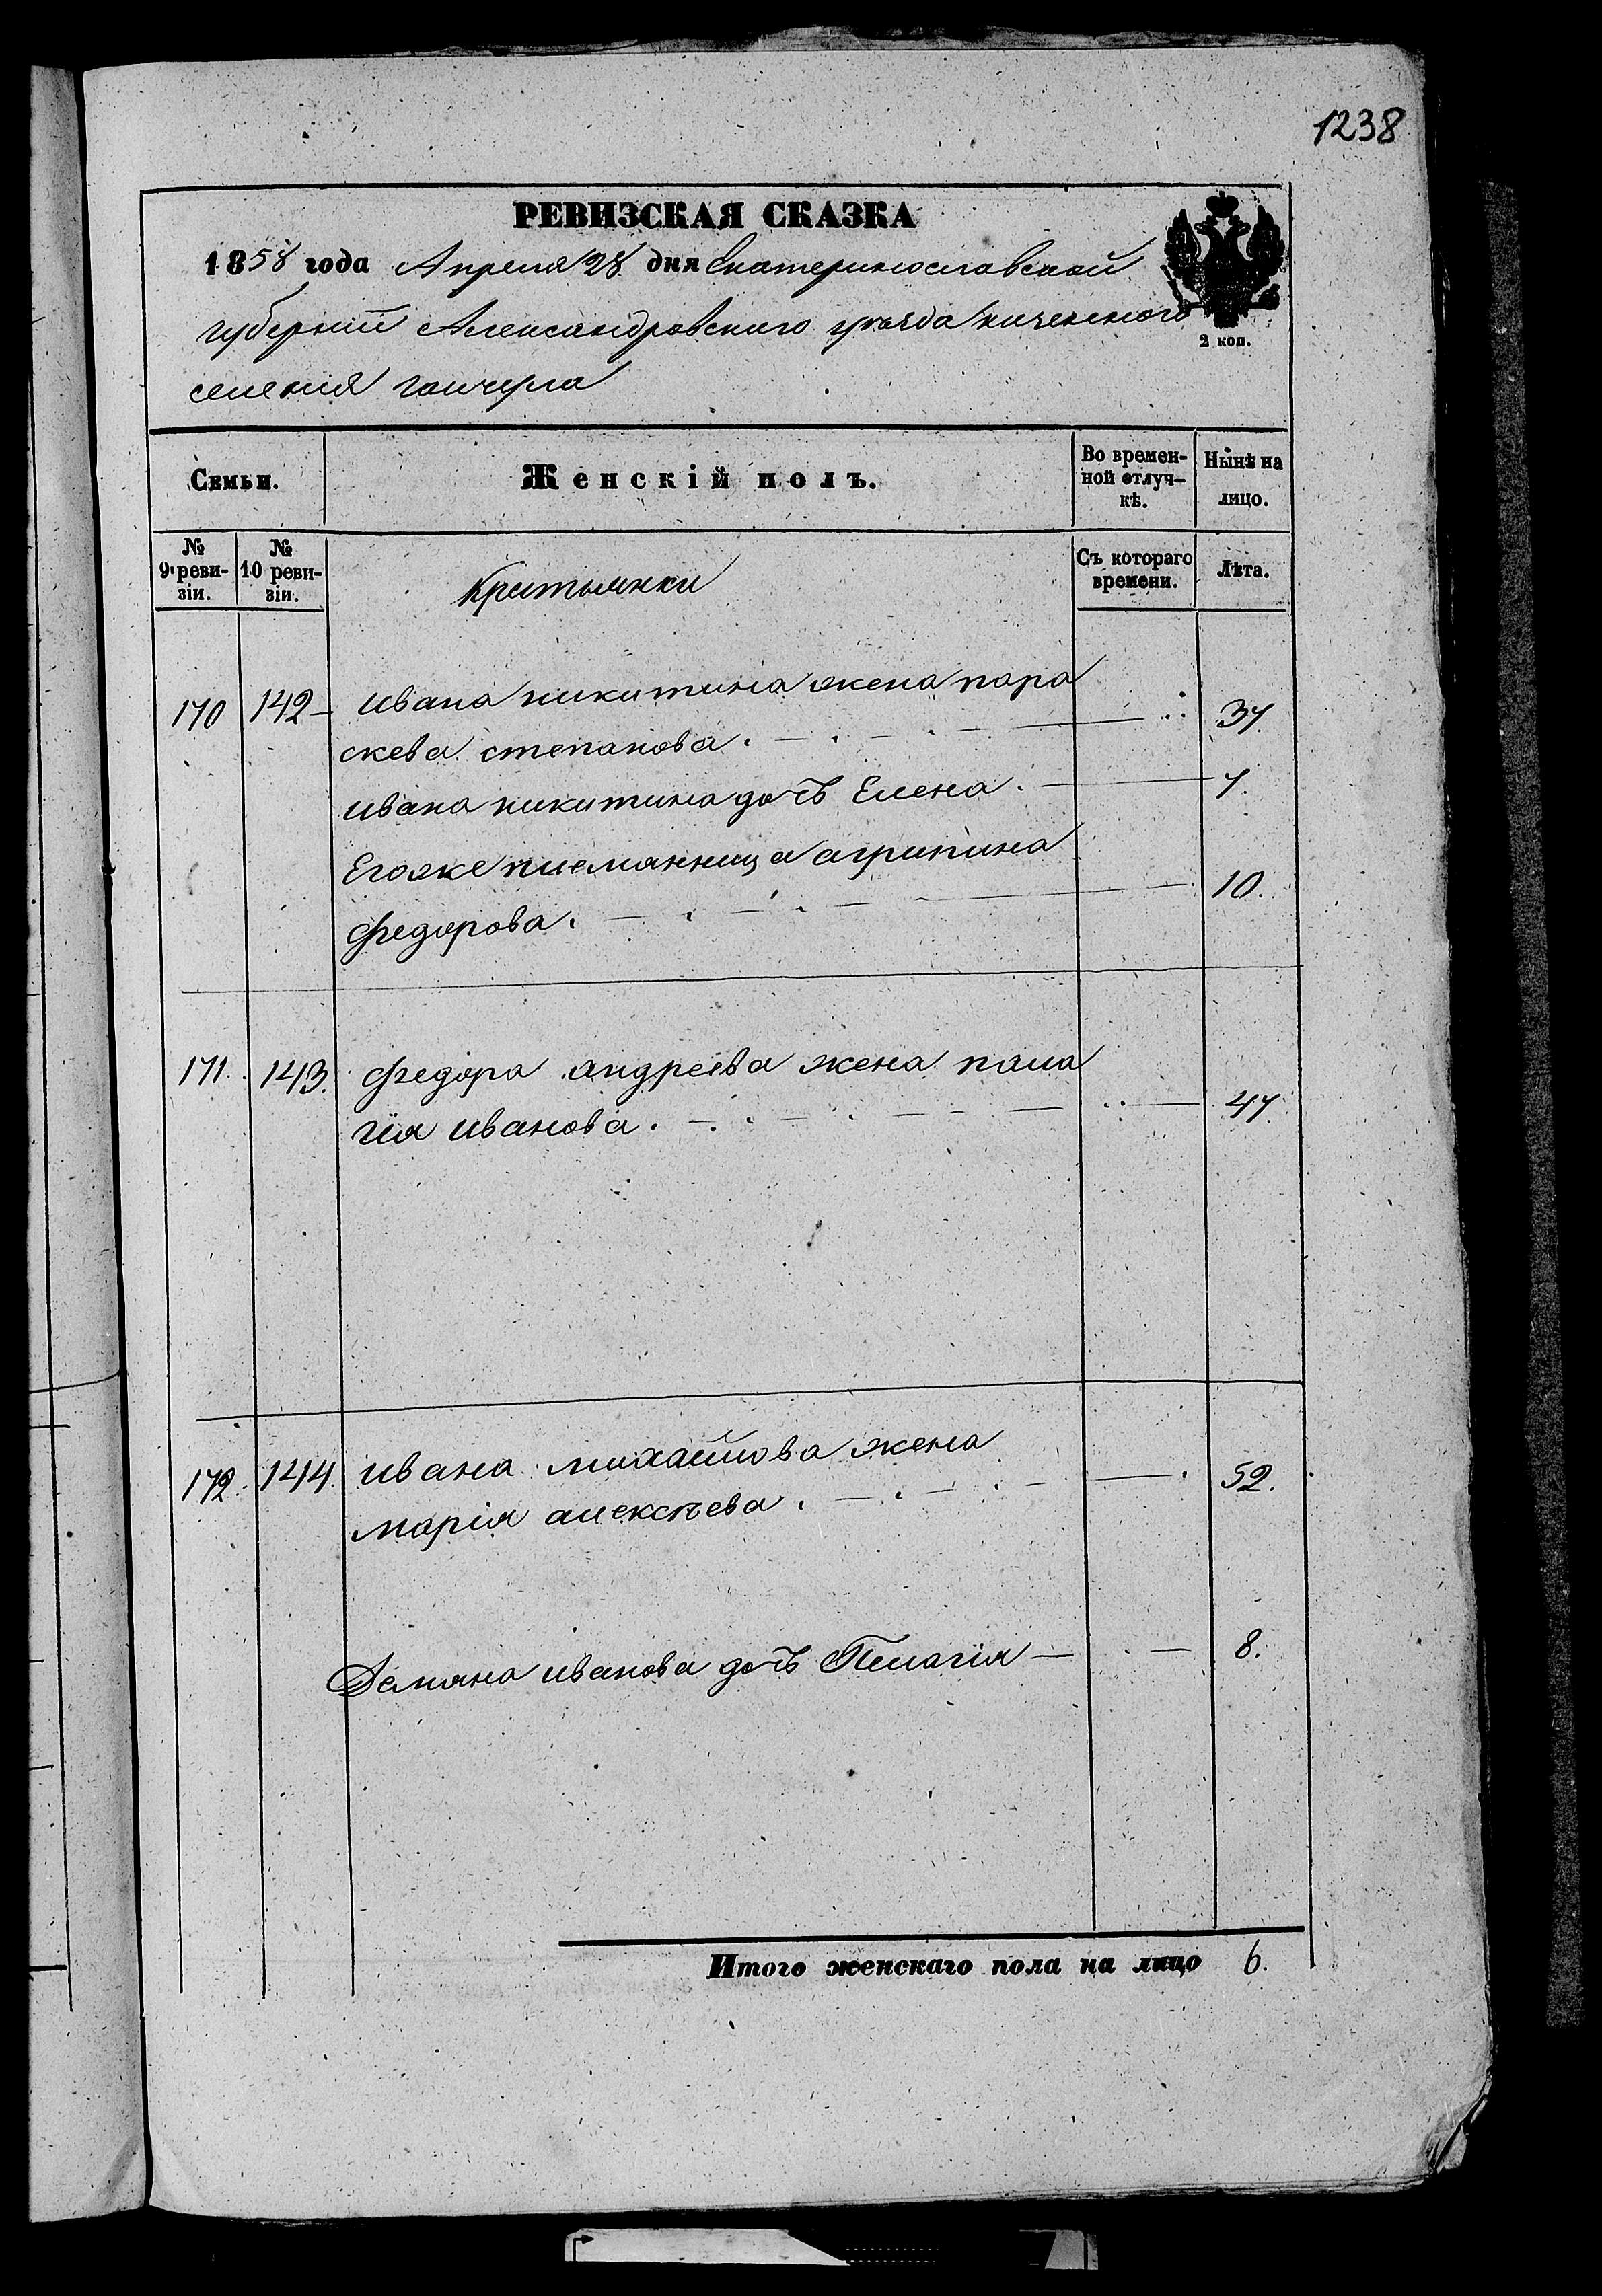 1238
РЕВИЗСКАЯ СКАЗКА
1858 года Апреля 28 дня Екатеринославской
губернии Александровского уезда
2 коп.
селения гаичула
Семьи.
Женскій полъ.
Во времен-
ной отлуч-
кѣ.
Нынѣ на
лицо.
№
9 реви-
зіи.
№
10 реви-
зіи.
Съ котораго
времени.
Лѣта.
170 142 ивана никитина жена пара
скева степанова. 37.
ивана никитина дочь Елена. 7.
Егоже племянница агрипина
федорова. 10.
171. 143. федора андреева жена пала
гия иванова. 47.
172. 144. ивана михайлова жена
марія алексѣева. 52.
Демяна иванова дочь Пелагія 8.
Итого женскаго пола на лицо 6.